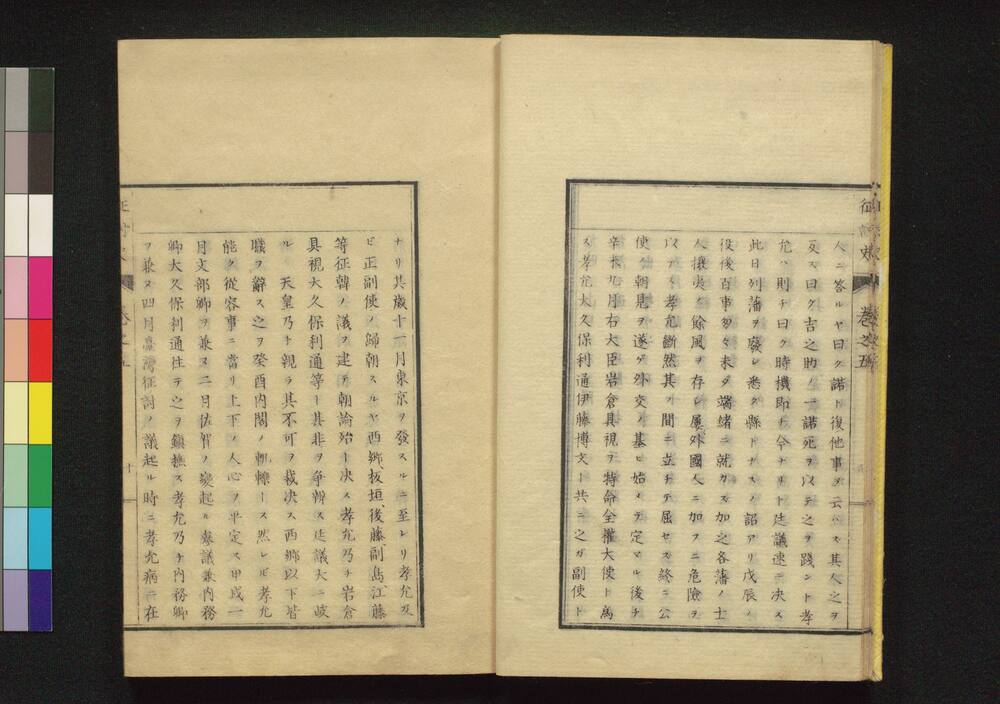 人ニ答ルヤ曰ク諾ト復他事ヲ云ハス其人之ヲ
反ス曰ク吉之助ノ一諾死ヲ以テ之ヲ踐ント孝
允ハ則チ曰ク時機即チ今ナリト廷議速ニ决ス
此日列藩ヲ廢シ悉ク縣トナスノ詔アリ戊辰ノ
役後百事多々未タ端緒ニ就カス加之各藩ノ士
人攘夷ノ餘風ヲ存シ屢外國人ニ加フニ危險ヲ
以テス孝允斷然其ノ間ニ立チテ屈セス終ニ公
使ノ朝見ヲ遂ケ外交ノ基ヒ始メテ定マル後チ
辛未九月右大臣岩倉具視ヲ特命全權大使ト為
ス孝允大久保利通伊藤博文ト共ニ之ガ副使ト
ナリ其歳十一月東京ヲ發スルニ至レリ孝允及
ビ正副使ノ歸朝スルヤ西郷板垣後藤副島江藤
等征韓ノ議ヲ建テ朝論殆ト决ス孝允乃チ岩倉
具視大久保利通等ト其非ヲ争辨ス廷議大ニ岐
ル　天皇乃ト親ラ其不可ヲ裁决ス西郷以下皆
職ヲ辭ス之ヲ癸酉内閣ノ軋轢トス然レビ孝允
能ク從容事ニ當リ上下ノ人心ノ平定ス甲戌一
月文部卿ヲ兼ヌ二月佐賀ノ變起ル參議兼内務
卿大久保利通往テ之ヲ鎭撫ス孝允乃チ内務卿
ヲ兼ヌ四月臺灣征討ノ議起ル時ニ孝允病ニ在
巻之五
十